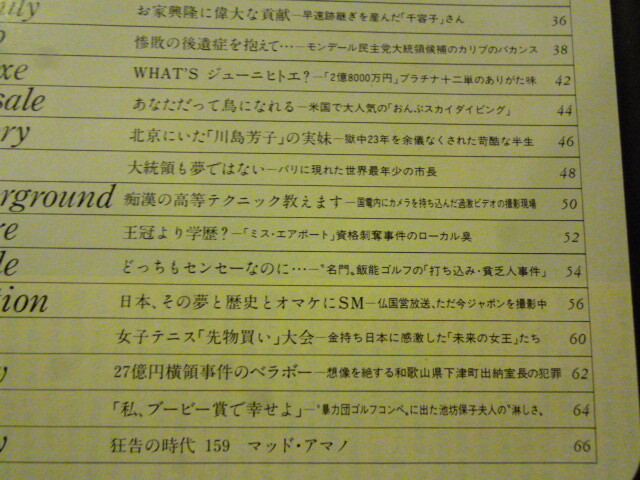 mily お家興隆に偉大な貢献―早速跡継ぎを産んだ「千容子」さん 36
惨敗の後遺症を抱えて…―モンデール民主党大統領候補のカリブのバカンス 38
xe WHAT'S ジューニヒトエ?―「2億8000万円」プラチナ十二単のありがた味 42
sale あなただって鳥になれる―米国で大人気の「おんぶスカイダイビング」 44
ry 北京にいた「川島芳子」の実妹―獄中23年を余儀なくされた苛酷な半生 46
大統領も夢ではない―パリに現れた世界最年少の市長 48
rground 痴漢の高等テクニック教えます―国電内にカメラを持ち込んだ過激ビデオの撮影現場 50
re 王冠より学歴?―「ミス・エアポート」資格剝奪事件のローカル臭 52
le どっちもセンセーなのに…―〝名門〟飯能ゴルフの「打ち込み・貧乏人事件」 54
tion 日本、その夢と歴史とオマケにSM―仏国営放送、ただ今ジャポンを撮影中 56
女子テニス「先物買い」大会―金持ち日本に感激した「未来の女王」たち 60
y 27億円横領事件のベラボー―想像を絶する和歌山県下津町出納室長の犯罪 62
「私、ブービー賞で幸せよ」―〝暴力団ゴルフコンペ〟に出た池坊保子夫人の〝淋しさ〟 64
y 狂告の時代 159 マッド・アマノ 66